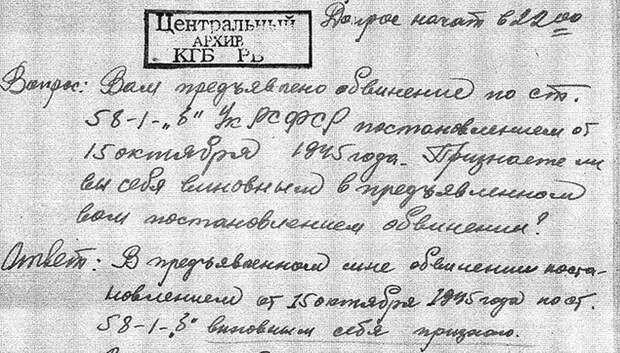 Центральный
АРХИВ
КГБ РБ
Допрос начат в 22 00
Вопрос: Вам предъявлено обвинение по ст.
58-1-„б" УК РСФСР постановлением от
15 октября 1945 года. Признаете ли
вы себя виновным в предъявленном
вам постановлением обвинении?
Ответ: В предъявленном мне обвинении поста-
новлением от 15 октября 1945 года по ст.
58-1-„б" виновным себя признаю.